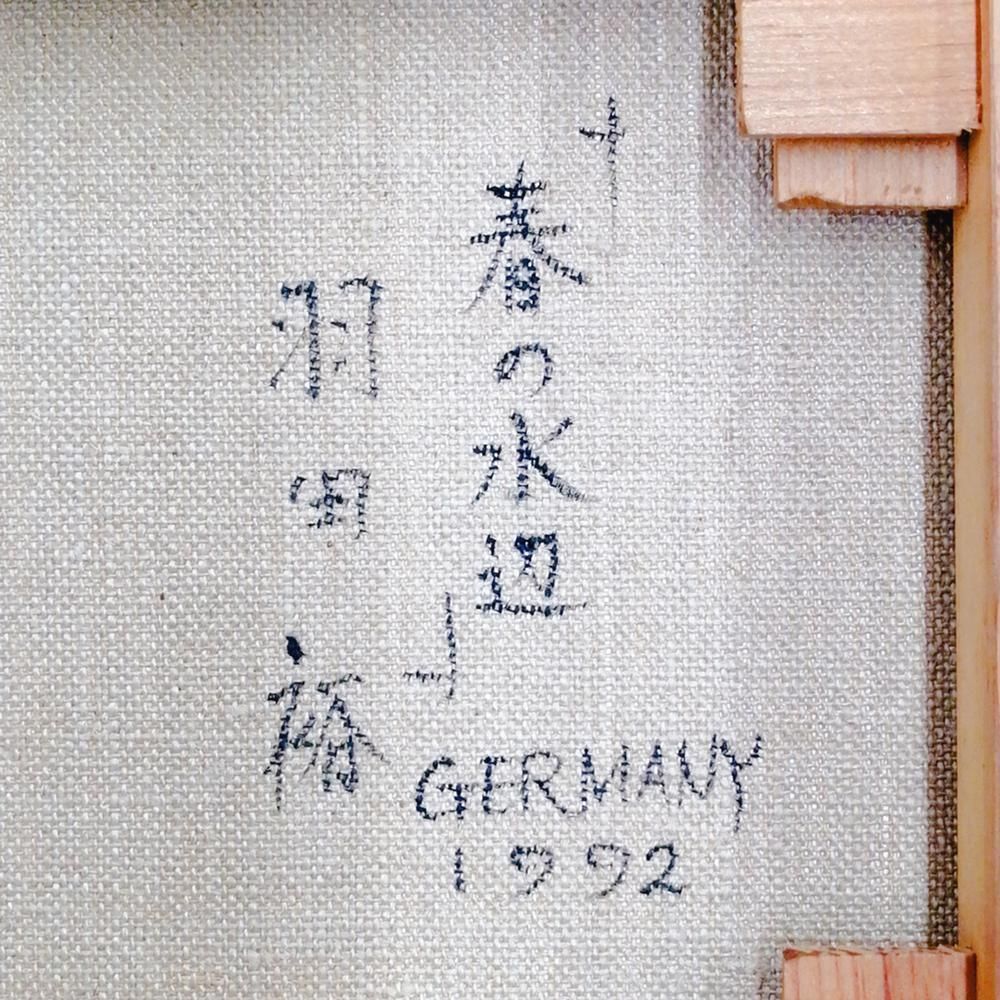 「春の水辺」
羽田 裕
GERMANY
1992